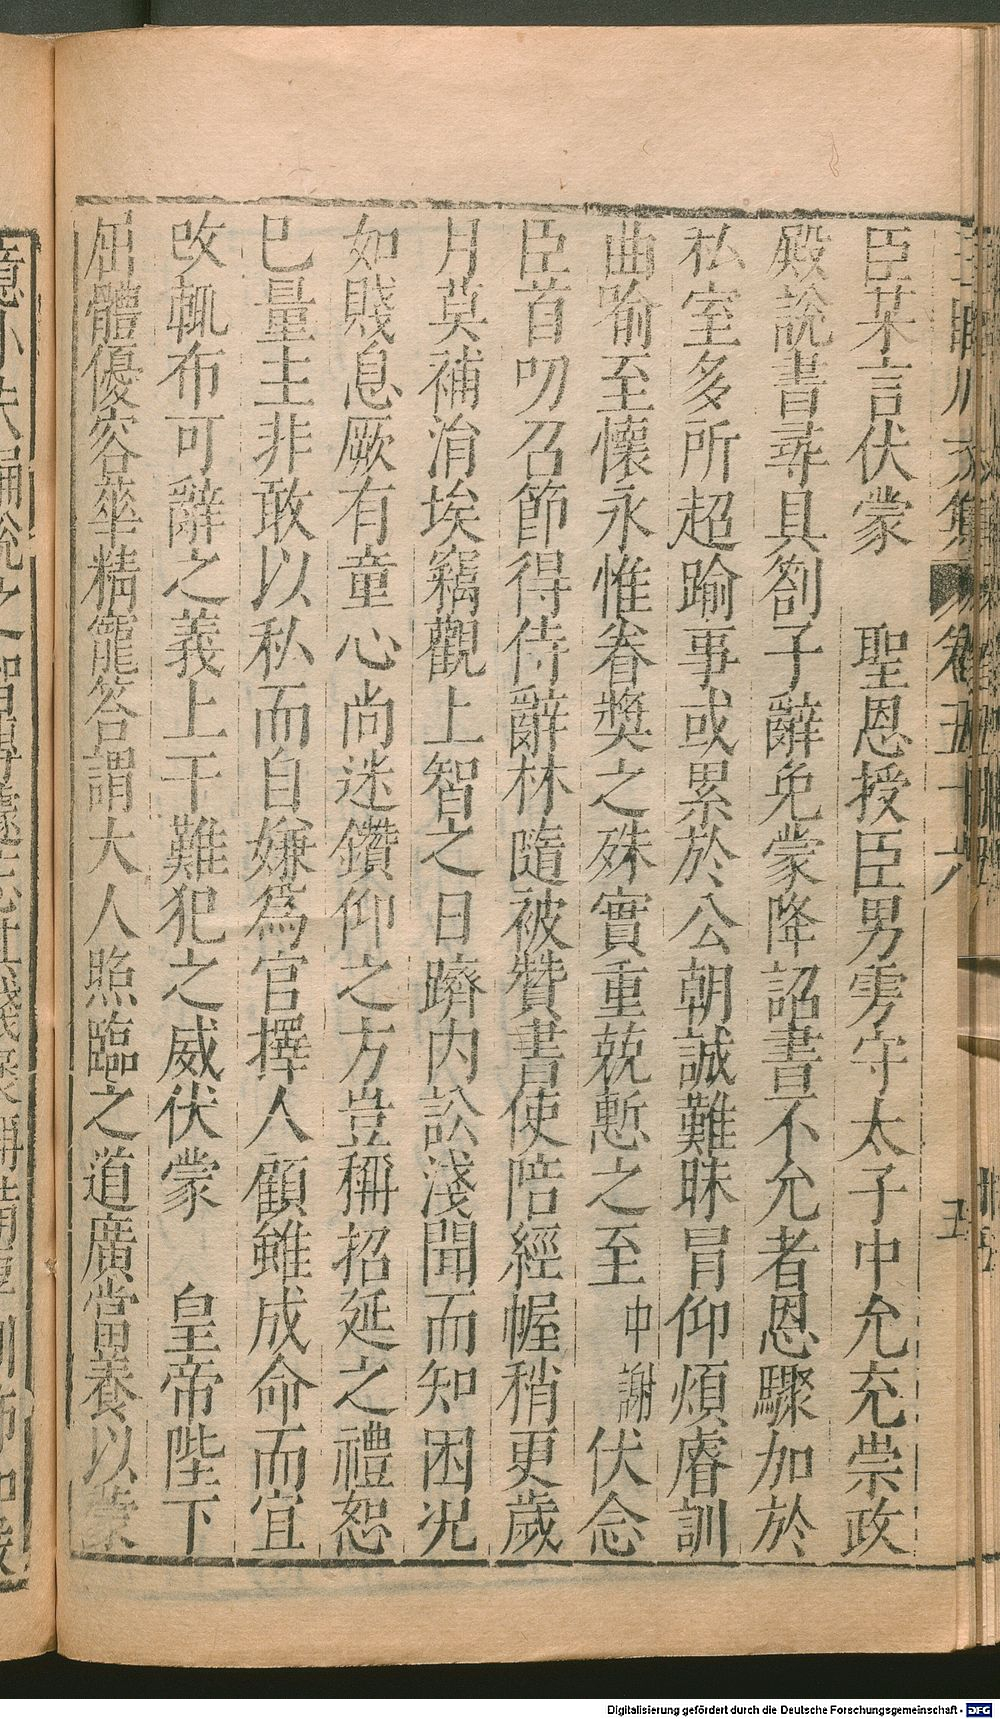 臣某言伏蒙　聖恩授臣男雱守太子中允充崇政
殿說書尋具劄子辭免蒙降詔書不允者恩驟加於
私室多所超踰事或累於公朝誠難昧冒仰煩睿訓
曲喻至懷永惟眷奬之殊實重兢慙之至中謝伏念
臣首叨召節得侍辭林隨被贊書使陪經幄稍更歲
月莫補涓埃竊觀上智之日躋內訟淺聞而知困况
如賤息厥有童心尚迷鑽仰之方豈稱招延之禮恕
已量主非敢以私而自嫌爲官擇人顧雖成命而宜
改輒布可辭之義上干難犯之威伏蒙　皇帝陛下
屈體優容華精寵答謂大人照臨之道廣當養以蒙
卷五十六
五
Digitalisierung gefördert durch die Deutsche Forschungsgemeinschaft - DFG